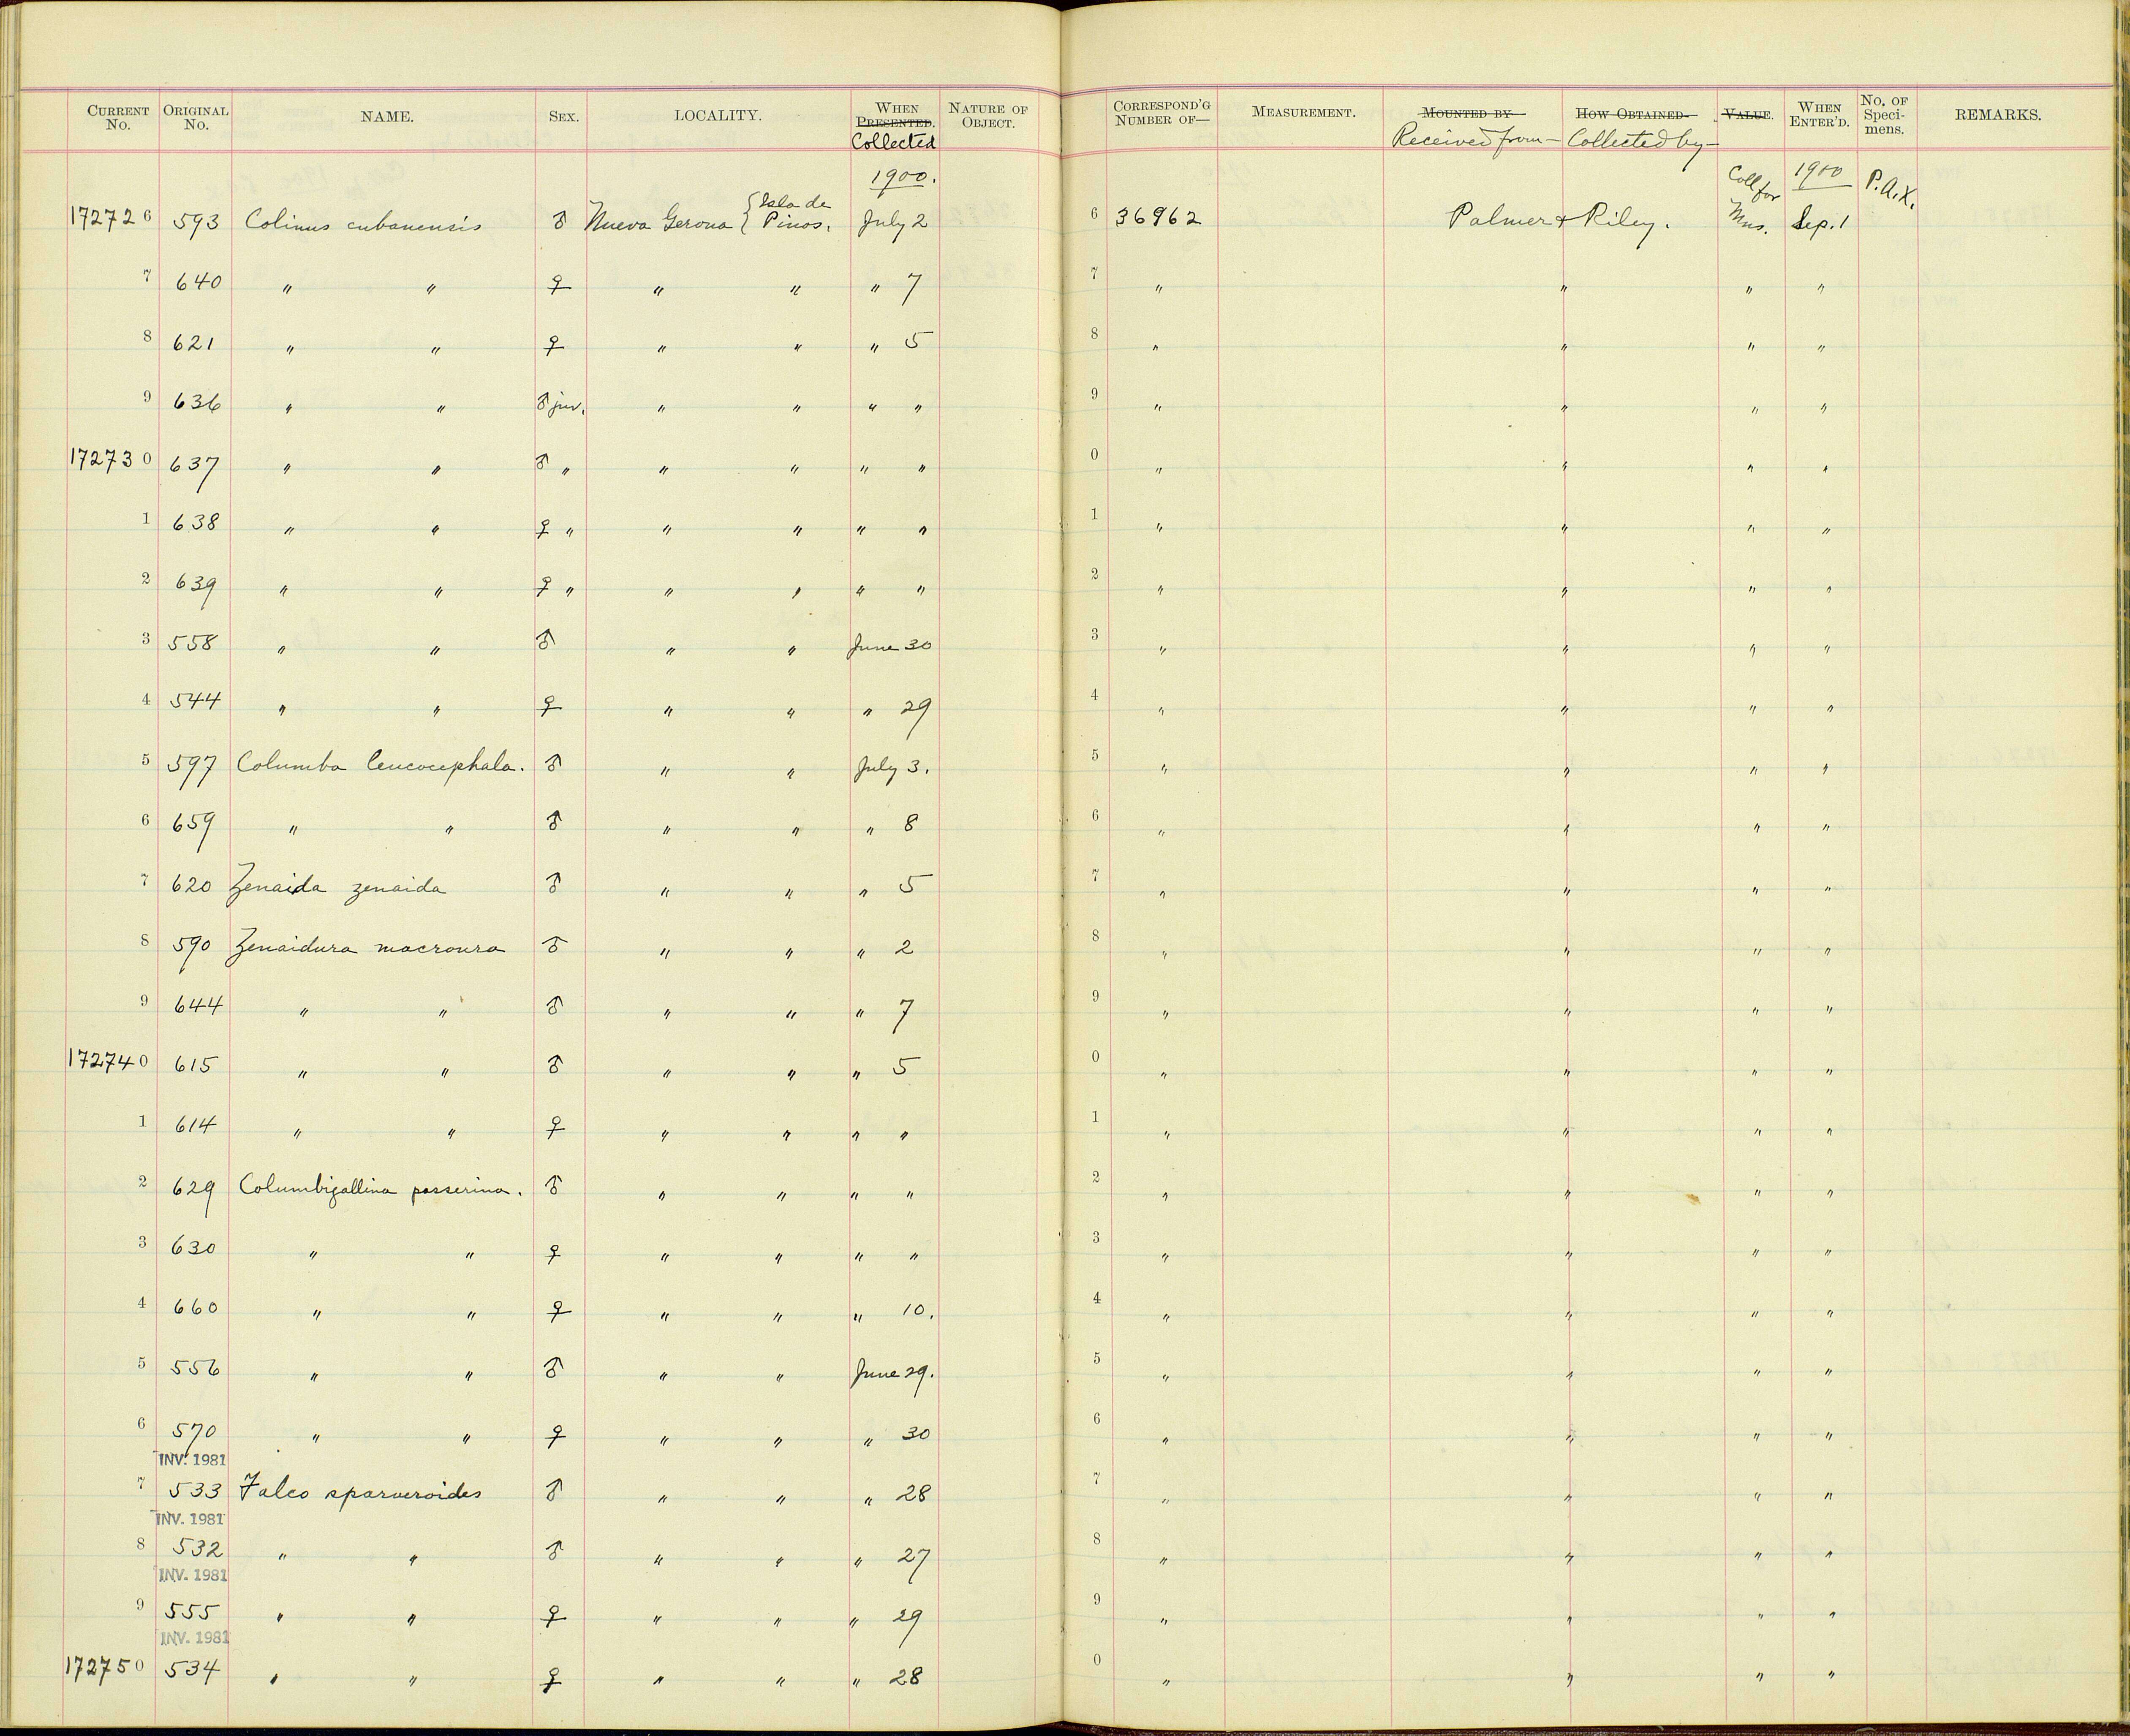 CURRENT No. ORIGINAL No. NAME. SEX. LOCALITY. WHEN PRESENTED. Collected NATURE OF OBJECT. CORRESPOND'G NUMBER OF— MEASUREMENT. MOUNTED BY Received from— HOW OBTAINED Collected by— VALUE. WHEN ENTER'D. No. OF Specimens. REMARKS.
1900. 1900
172726 593 Colinus cubanensis ♂ Nueva Gerona { Isla de Pinos. July 2 6 36962 Palmer & Riley. Coll for Mus. Sep. 1 P.A.X.
7 640 " " ♀ " " " 7 7 " " " "
8 621 " " ♀ " " " 5 8 " " " "
9 636 " " ♂ juv. " " " " 9 " " " "
172730 637 " " ♂ " " " " " 0 " " " "
1 638 " " ♀ " " " " " 1 " " " "
2 639 " " ♀ " " " " " 2 " " " "
3 558 " " ♂ " " June 30 3 " " " "
4 544 " " ♀ " " " 29 4 " " " "
5 597 Columba leucocephala. ♂ " " July 3. 5 " " " "
6 659 " " ♂ " " " 8 6 " " " "
7 620 Zenaida zenaida ♂ " " " 5 7 " " " "
8 590 Zenaidura macroura ♂ " " " 2 8 " " " "
9 644 " " ♂ " " " 7 9 " " " "
172740 615 " " ♂ " " " 5 0 " " " "
1 614 " " ♀ " " " " 1 " " " "
2 629 Columbigallina passerina. ♂ " " " " 2 " " " "
3 630 " " ♀ " " " " 3 " " " "
4 660 " " ♀ " " " 10. 4 " " " "
5 556 " " ♂ " " June 29. 5 " " " "
6 570 " " ♀ " " " 30 6 " " " "
INV. 1981
7 533 Falco sparveroides ♂ " " " 28 7 " " " "
INV. 1981
8 532 " " ♂ " " " 27 8 " " " "
INV. 1981
9 555 " " ♀ " " " 29 9 " " " "
INV. 1981
172750 534 " " ♀ " " " 28 0 " " " "